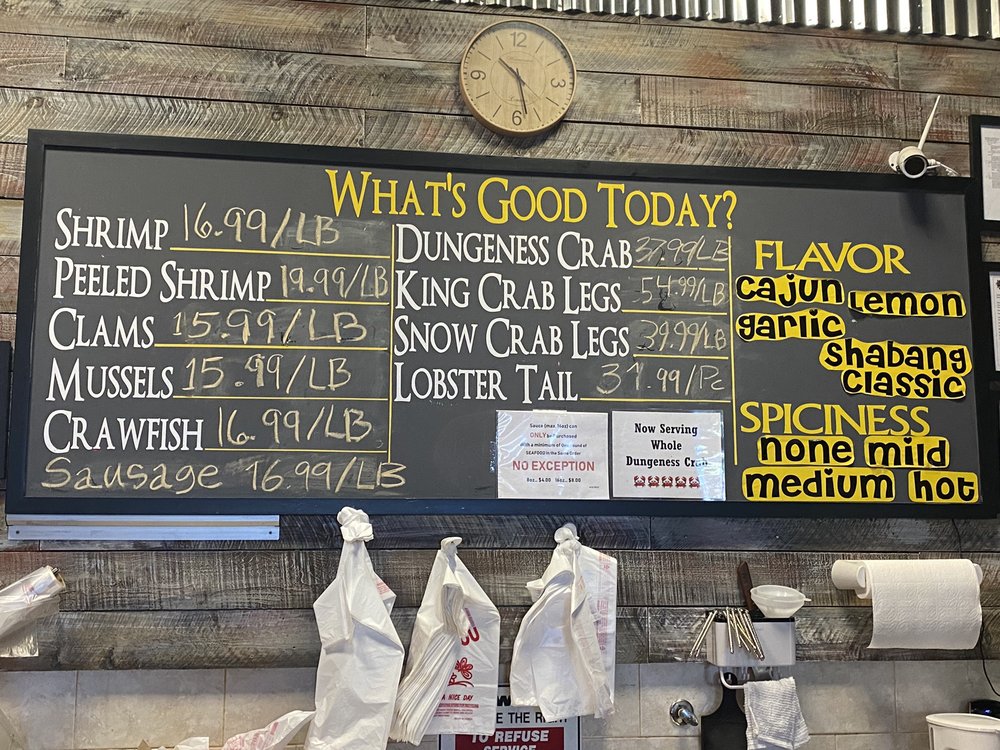 12
3
6
9
WHAT'S GOOD TODAY?
SHRIMP 16.99/LB
PEELED SHRIMP 19.99/LB
CLAMS 15.99/LB
MUSSELS 15.99/LB
CRAWFISH 16.99/LB
Sausage 16.99/LB
DUNGENESS CRAB 37.99/LB
KING CRAB LEGS 54.99/LB
SNOW CRAB LEGS 39.99/LB
LOBSTER TAIL 31.99/Pc
Sauce (max. 16oz) can
ONLY be Purchased
with a minimum of One Pound of
SEAFOOD in the Same Order
NO EXCEPTION
8oz.. $4.00 16oz.. $8.00
Now Serving
Whole
Dungeness Crab
FLAVOR
cajun Lemon
garlic
shabang
classic
SPICINESS
none mild
medium hot
A NICE DAY
E THE RI
TO REFUSE
SERVICE